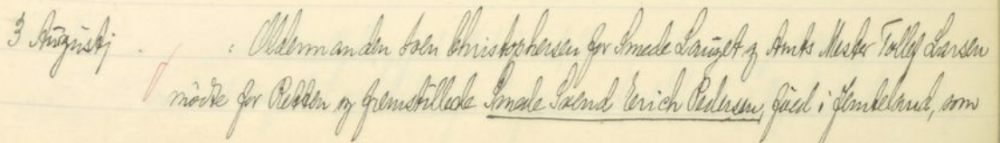 3 Augustj . : Oldermanden Sven Christophersen for Smede Lauget og Amts Mester Tollef Larsen
mödte for Retten og fremstillede Smede Svend Erich Pedersen, föed i Jemteland, som